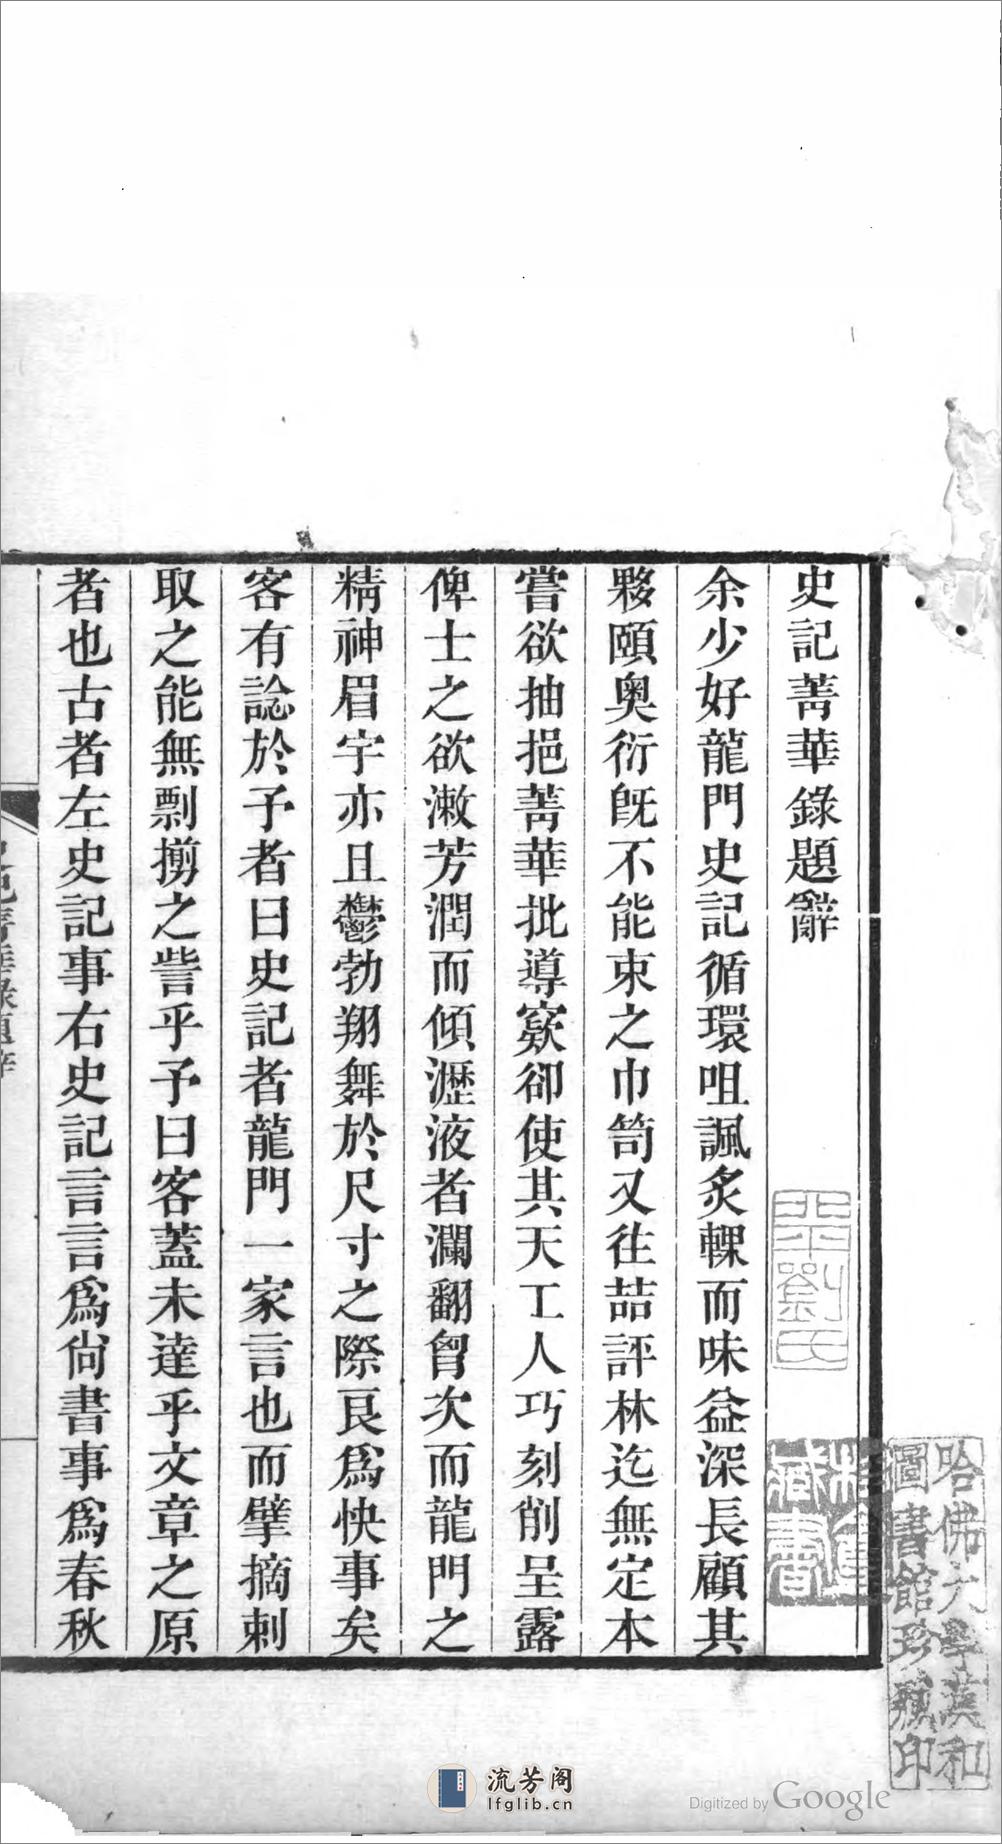 史記菁華錄題辭
余少好龍門史記循環咀諷炙輠而味益深長顧其
夥頤奧衍旣不能束之巾笥又往喆評林迄無定本
嘗欲抽挹菁華批導窾卻使其天工人巧刻削呈露
俾士之欲漱芳潤而傾瀝液者瀾翻胷次而龍門之
精神眉宇亦且鬱勃翔舞於尺寸之際良爲快事矣
客有諗於予者曰史記者龍門一家言也而擘摘剌
取之能無剽搠之訾乎予曰客蓋未達乎文章之原
者也古者左史記事右史記言言爲尙書事爲春秋
劉氏
藏書
哈佛大學漢和
圖書館珍藏印
流芳阁
lfglib.cn
Digitized by Google